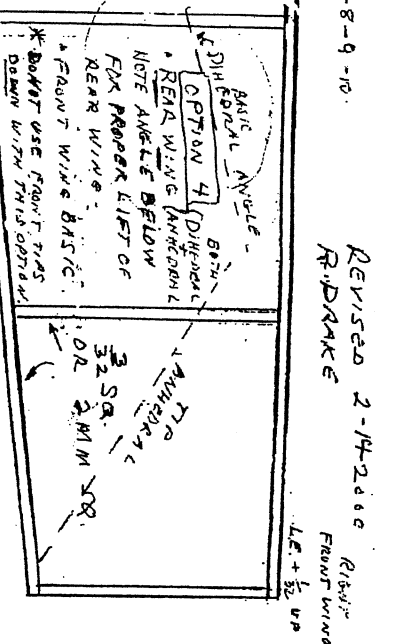 -8-9-10.
REVISED 2-14-2000
R. DRAKE
RIGHT
FRONT WING
L.E. + 1/32 UP
BASIC
DIHEDRAL ANGLE-
OPTION 4
(DIHEDRAL
BOTH
• REAR WING (ANHEDRAL
NOTE ANGLE BELOW
FOR PROPER LIFT OF
REAR WING-
• FRONT WING BASIC.
* DO NOT USE FRONT TIPS
DOWN WITH THIS OPTION
TIP
ANHEDRAL
3/32 SQ.
OR 2MM SQ.